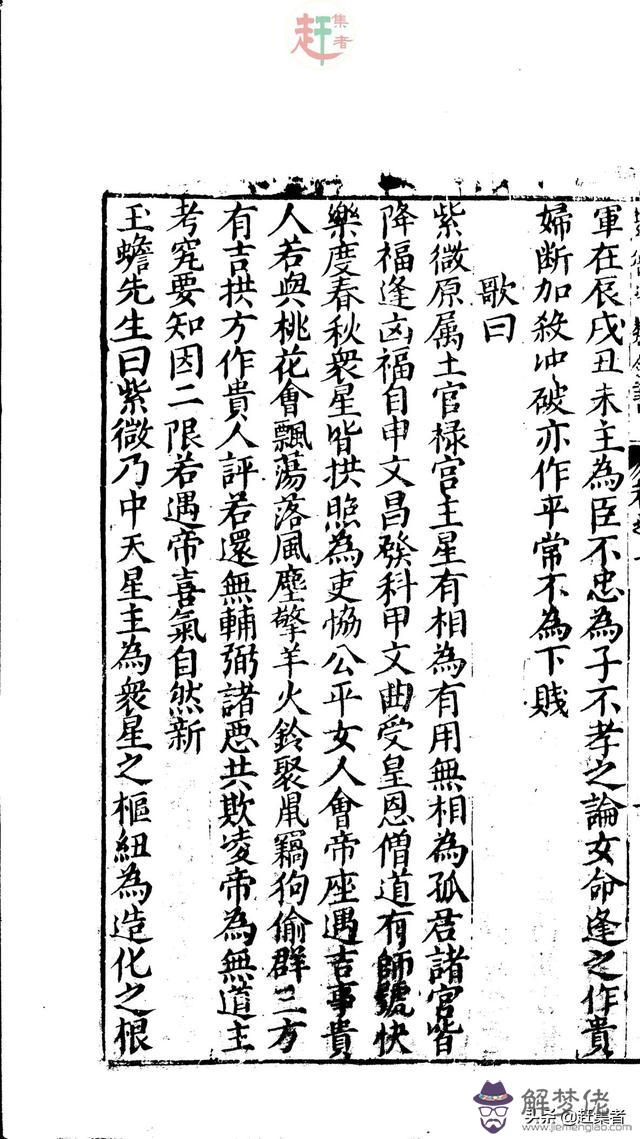 赶集者
軍在辰戌丑未主為臣不忠為子不孝之論女命逢之作貴
婦断加殺冲破亦作平常不為下賎
歌曰
紫微原属土官禄宫主星有相為有用無相為孤君諸宫皆
降福逢凶福自申文昌發科甲文曲受皇恩僧道有師號快
樂度春秋衆星皆拱照為吏恊公平女人會帝座遇吉事貴
人若與桃花會飄蕩落風塵擎羊火鈴聚鼠竊狗偷群三方
有吉拱方作貴人評若還無輔弼諸惡共欺凌帝為無道主
考究要知因二限若遇帝喜氣自然新
玉蟾先生曰紫微乃中天星主為衆星之樞紐為造化之根
解梦佬
www.jiemenglao.com
头条 @赶集者